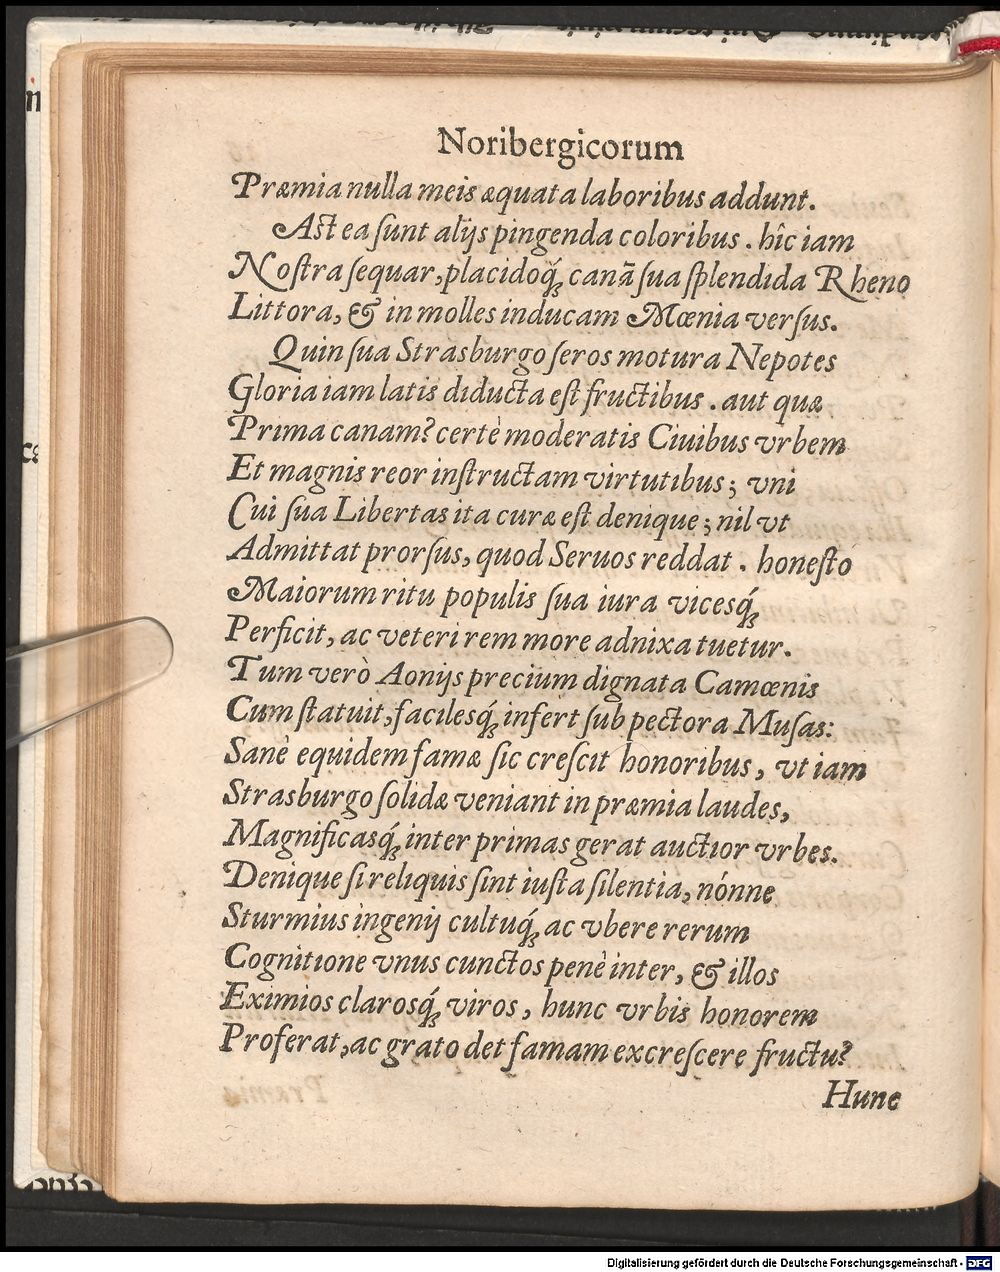 Noribergicorum
Præmia nulla meis æquata laboribus addunt.
Ast ea ſunt alijs pingenda coloribus. hîc iam
Noſtra ſequar, placidoq́ꝫ canã ſua ſplendida Rheno
Littora, & in molles inducam Mœnia verſus.
Quin ſua Strasburgo ſeros motura Nepotes
Gloria iam latis diducta eſt fructibus. aut quæ
Prima canam? certè moderatis Ciuibus vrbem
Et magnis reor inſtructam virtutibus; vni
Cui ſua Libertas ita curæ eſt denique; nil vt
Admittat prorſus, quod Seruos reddat. honeſto
Maiorum ritu populis ſua iura vicesq́ꝫ
Perficit, ac veteri rem more adnixa tuetur.
Tum verò Aonijs precium dignata Camœnis
Cum ſtatuit, facilesq́ꝫ infert ſub pectora Muſas:
Sanè equidem famæ ſic creſcit honoribus, vt iam
Strasburgo ſolidæ veniant in præmia laudes,
Magnificasq́ꝫ inter primas gerat auctior vrbes.
Denique ſi reliquis ſint iuſta ſilentia, nónne
Sturmius ingenij cultuq́ꝫ ac vbere rerum
Cognitione vnus cunctos penè inter, & illos
Eximios clarosq́ꝫ viros, hunc vrbis honorem
Proferat, ac grato det famam excreſcere fructu?
Hunc
Digitalisierung gefördert durch die Deutsche Forschungsgemeinschaft - DFG